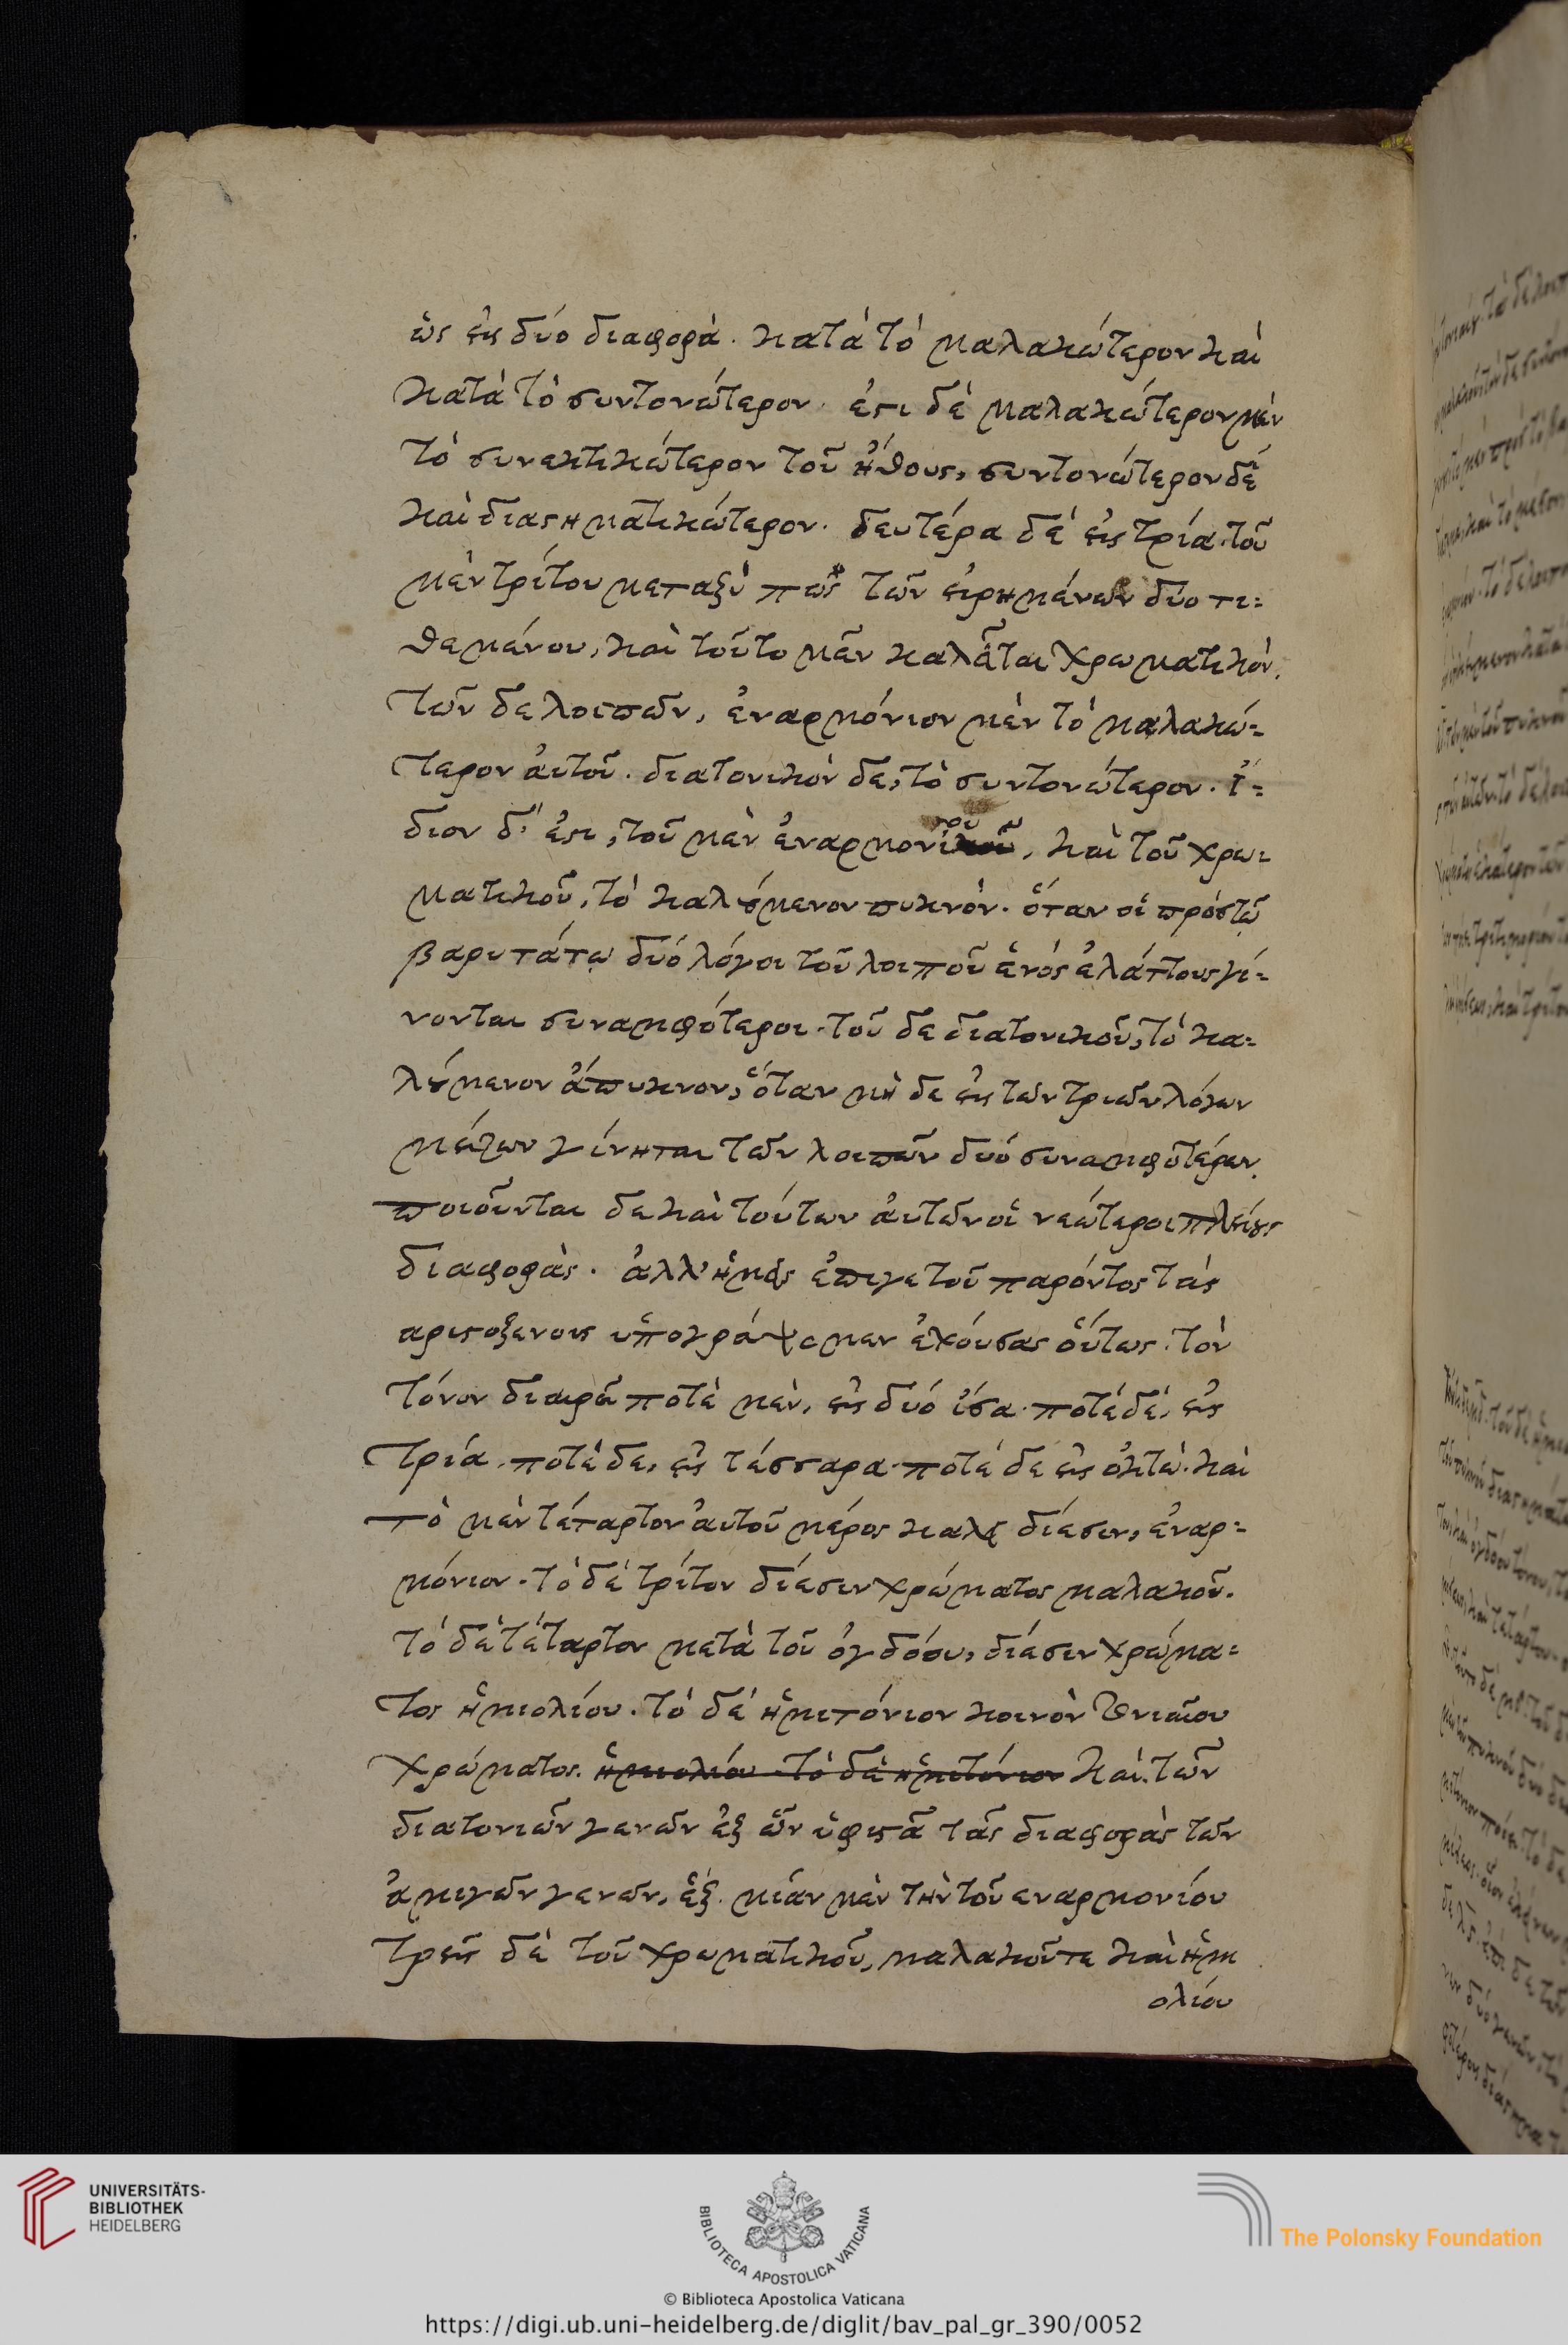 ὡς εἰς δύο διαφορὰ. κατὰ τὸ μαλακώτερον καὶ
κατὰ τὸ συντονώτερον. ἐστι δὲ μαλακώτερον μὲν
τὸ συνεκτικώτερον τοῦ ἤθους, συντονώτερον δὲ
καὶ διαστηματικώτερον. δευτέρα δὲ εἰς τρία. τοῦ
μὲν τρίτου μεταξύ πως τῶν εἰρημένων δύο τι=
θεμένου, καὶ τοῦτο μὲν καλεῖται χρωματικὸν.
τῶν δε λοιπῶν, ἐναρμόνιον μὲν τὸ μαλακώ=
τερον ἀυτοῦ. διατονικὸν δε, τὸ συντονώτερον. ἴ=
διον δ' ἐστι, τοῦ μὲν ἐναρμονίου, καὶ τοῦ χρω=
ματικοῦ, τὸ καλούμενον πυκνόν. ὅταν οἱ πρὸς τῷ
βαρυτάτῳ δυό λόγοι τοῦ λοιποῦ ἑνός ἐλάττους γί=
νονται συναμφότεροι. τοῦ δε διατονικοῦ, τὸ κα=
λούμενον ἄπυκνον, ὅταν μὴ δε εἷς τῶν τριῶν λόγων
μείζων γίνηται τῶν λοιπῶν δυό συναμφοτέρων.
ποιοῦνται δε καὶ τούτων ἀυτῶν οἱ νεώτεροι πλείους
διαφορὰς. ἀλλ' ἡμεῖς ἐπιγε τοῦ παρόντος τὰς
αριστοξενοις ὑπογράψομεν ἐχούσας οὕτως. τὸν
τόνον διαιρεῖ ποτὲ μὲν, εἰς δυό ἴσα. ποτέ δέ, εἰς
τρία. ποτὲ δε, εἰς τέσσαρα. ποτέ δε εἰς ὀκτώ. καὶ
τὸ μὲν τέταρτον ἀυτοῦ μέρος καλεῖ δίεσιν, ἐναρ=
μόνιον. τὸ δέ τρίτον δίεσιν χρώματος μαλακοῦ.
τὸ δὲ τέταρτον μετὰ τοῦ ὀγδόου, δίεσιν χρώμα=
τος ἡμιολίου. τὸ δέ ἡμιτόνιον κοινὸν τονιαίου
χρώματος. ἡμιολίου. τὸ δὲ ἡμιτόνιον καὶ. τῶν
διατονιῶν γενῶν ἐξ ὧν ὑφιστᾶ τάς διαφορὰς τῶν
ἀμιγῶν γενῶν, ἕξ. μιάν μὲν τὴν τοῦ εναρμονίου
τρεῖς δὲ τοῦ χρωματικοῦ, μαλακοῦτε καὶ ἡμι
ολίου
UNIVERSITÄTS-
BIBLIOTHEK
HEIDELBERG
BIBLIOTECA APOSTOLICA VATICANA
The Polonsky Foundation
© Biblioteca Apostolica Vaticana
https://digi.ub.uni-heidelberg.de/diglit/bav_pal_gr_390/0052